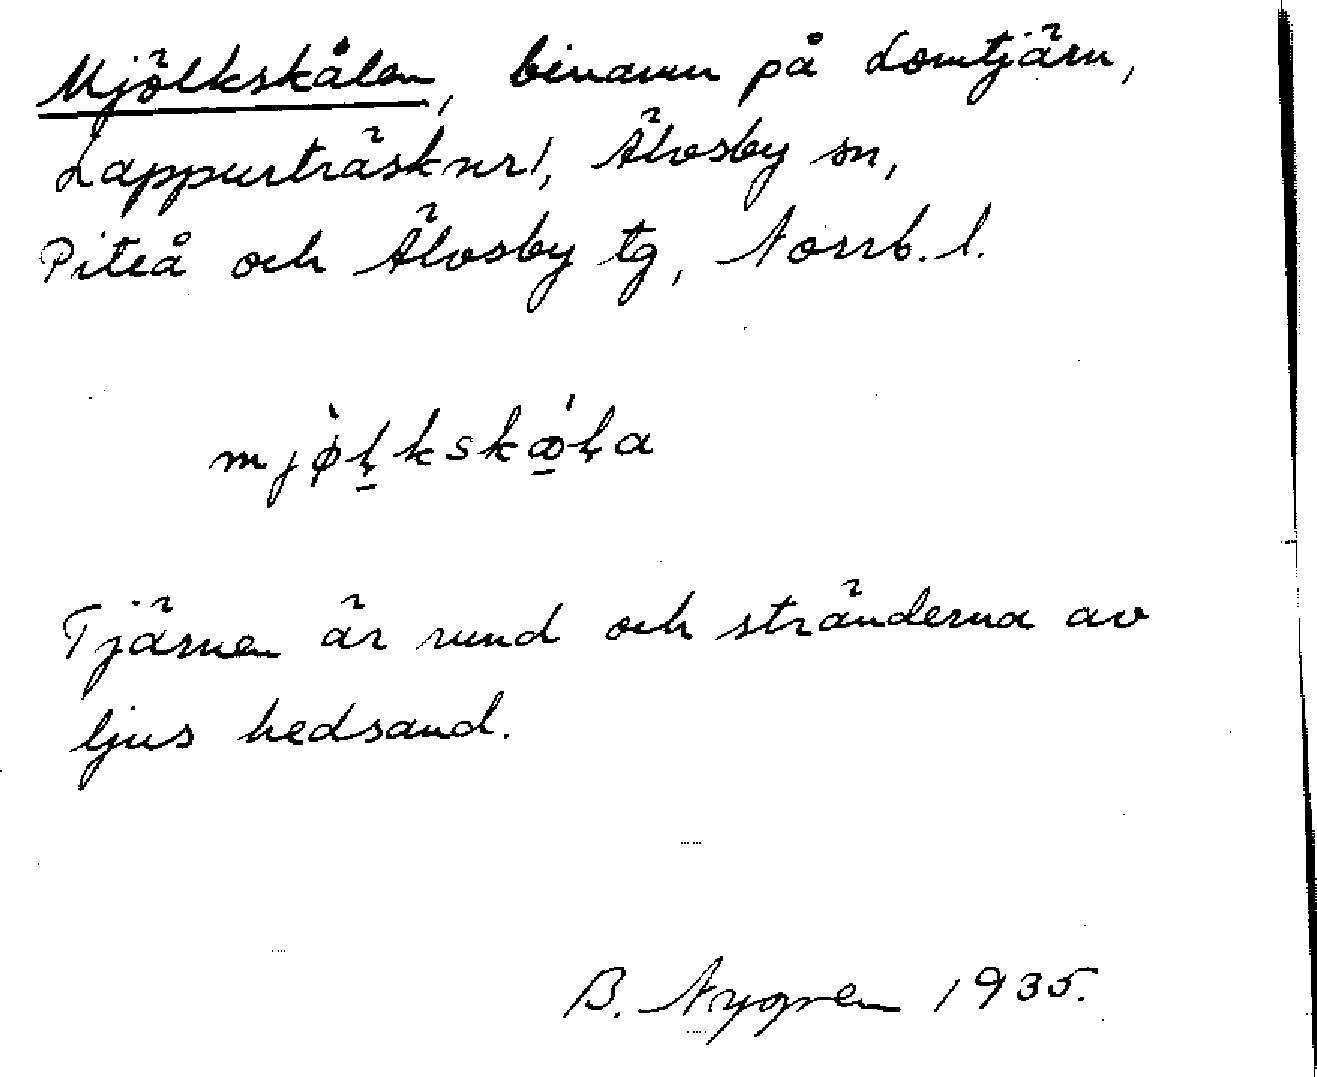 Mjölkskålen, binamn på Lomtjärn,
Lappurträsk nr 1, Älvsby sn,
Piteå och Älvsby tg, Norrb. l.
mjø̀ḷkskœ́ḷa
Tjärnen är rund och stränderna av
ljus hedsand.
B. Nygren 1935.